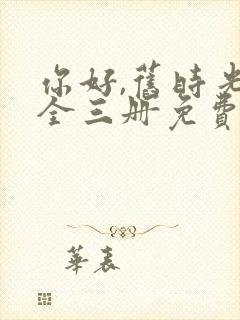 你好,舊時光
全三册免費
華表